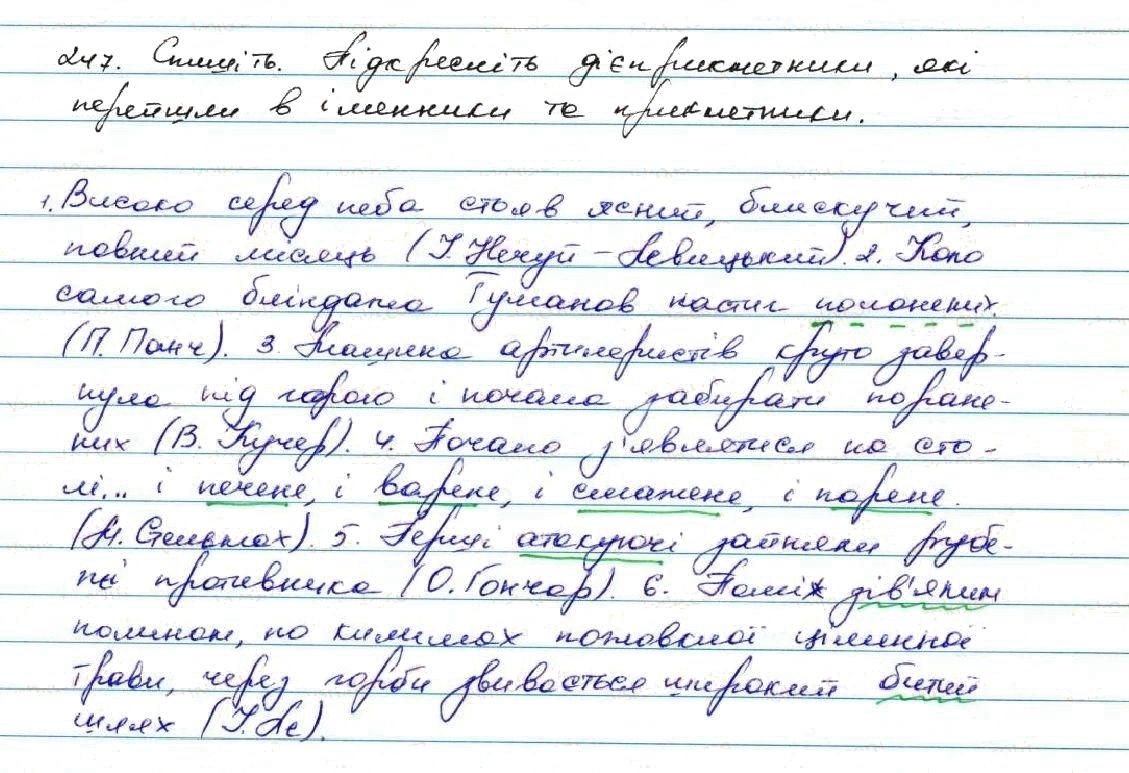 247. Спишіть. Підкресліть дієприкметники, які
перейшли в іменники та прикметники.
1. Високо серед неба стояв ясний, блискучий,
повний місяць (І. Нечуй-Левицький). 2. Коло
самого бліндажа Туманов настиг полонених.
(П. Панч). 3. Машина артилеристів круто завер-
нула під горою і почала забирати поране-
них (В. Кучер). 4. Почало з'являтися на сто-
лі... і печене, і варене, і смажене, і парене.
(М. Стельмах). 5. Перші атакуючі зайняли рубе-
жі противника (О. Гончар). 6. Поміж зів'ялим
полином, по килимах пожовклої цілинної
трави, через горби звивається широкий битий
шлях (І. Ле).